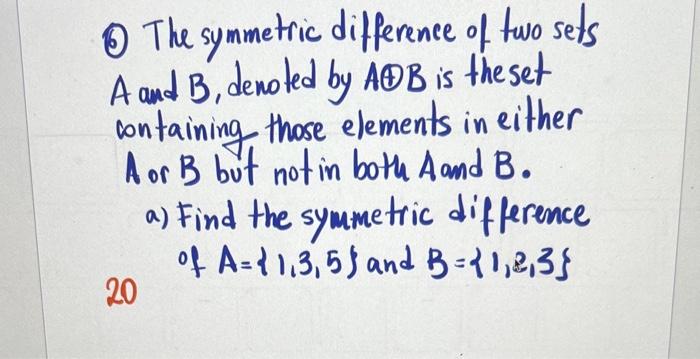 ⑥ The symmetric difference of two sets
A and B, denoted by A⊕B is the set
containing those elements in either
A or B but not in both A and B.
a) Find the symmetric difference
of A={1,3,5} and B={1,2,3}
20